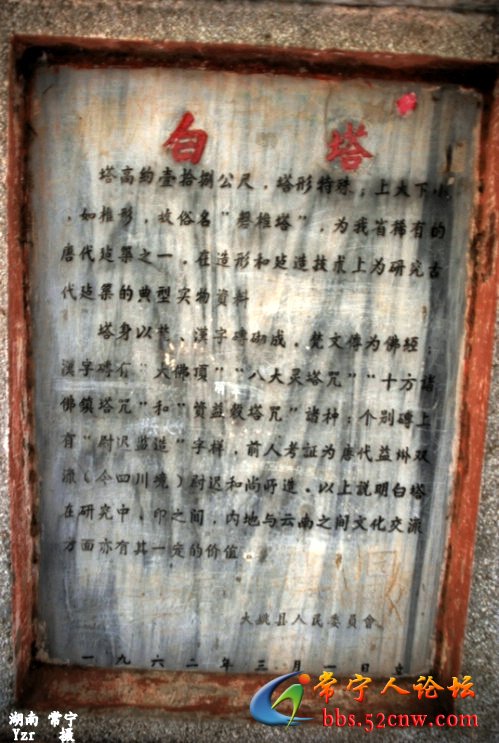 白塔
塔高約壹拾捌公尺，塔形特殊；上大下小
，如椎形，故俗名"磬椎塔"，为我省稀有的
唐代建築之一，在造形和建造技术上为研究古
代建築的典型实物資料
塔身以梵、漢字磚砌成，梵文傳为佛經，
漢字磚有"大佛頂""八大灵塔咒""十方諸
佛鎮塔咒"和"資益穀塔咒"諸种；个别磚上
有"尉迟监造"字样，前人考証为唐代益州双
流（今四川境）尉迟和尚所造。以上説明白塔
在研究中、印之间，内地与云南之间文化交流
方面亦有其一定的价值。
大姚县人民委員會
一九六二年三月一日立
湖南 常宁
Yzr 摄
常宁人论坛
bbs.52cnw.com